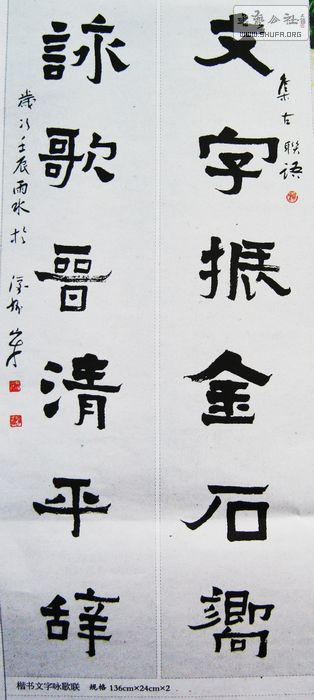 书艺公社
WWW.SHUFA.ORG
文字振金石嚮
集古聯語
詠歌晉清平辞
歲次壬辰雨水於
楷书文字咏歌联 规格 136cm×24cm×2